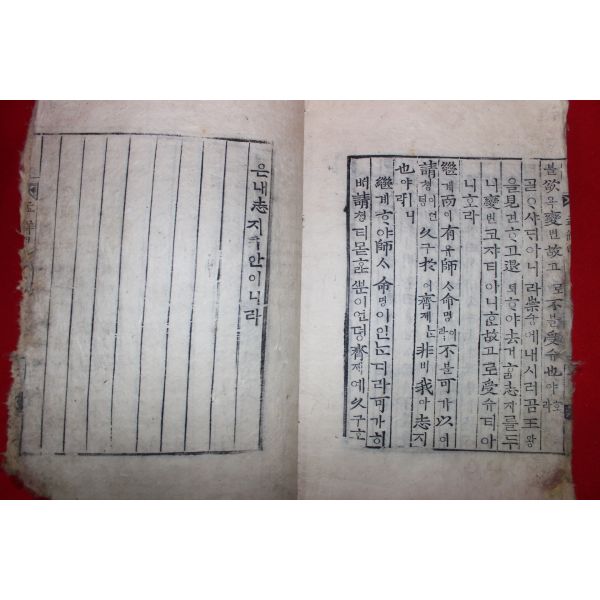 블欲욕變변故고로不블受슈也야호라
ᄀᆞᆯᄋᆞ샤ᄃᆡ아니라崇슝에내시러곰王왕
을見견ᄒᆞ고退퇴ᄒᆞ야去거ᄒᆞᆯ志지를두
니變변코쟈티아니ᄒᆞᆫ故고로受슈티아
니호라
繼계而이有유師ᄉᆞ命명이라不블可가以이
請쳥이언뎡久구於어齊졔ᄂᆞᆫ非비我아志지
也야ㅣ니라
繼계ᄒᆞ야師ᄉᆞ命명이인ᄂᆞᆫ디라可가히
ᄡᅥ請쳥티몯ᄒᆞᆯᄲᅮᆫ이언뎡齊졔예久구홈
은내志지ㅣ안이니라